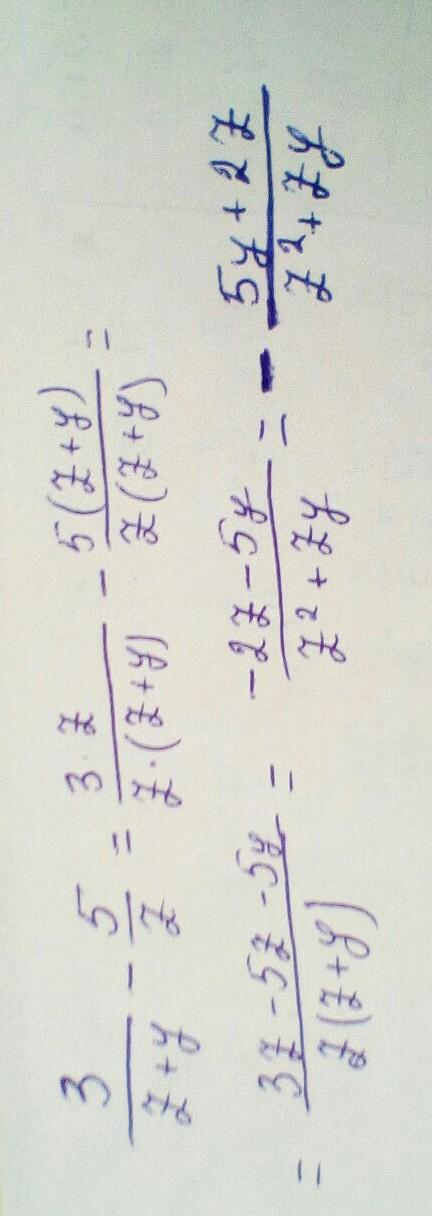 3/(z+y) - 5/z = 3·z/(z·(z+y)) - 5(z+y)/(z(z+y)) =
= (3z-5z-5y)/(z(z+y)) = (-2z-5y)/(z²+zy) = - (5y+2z)/(z²+zy)